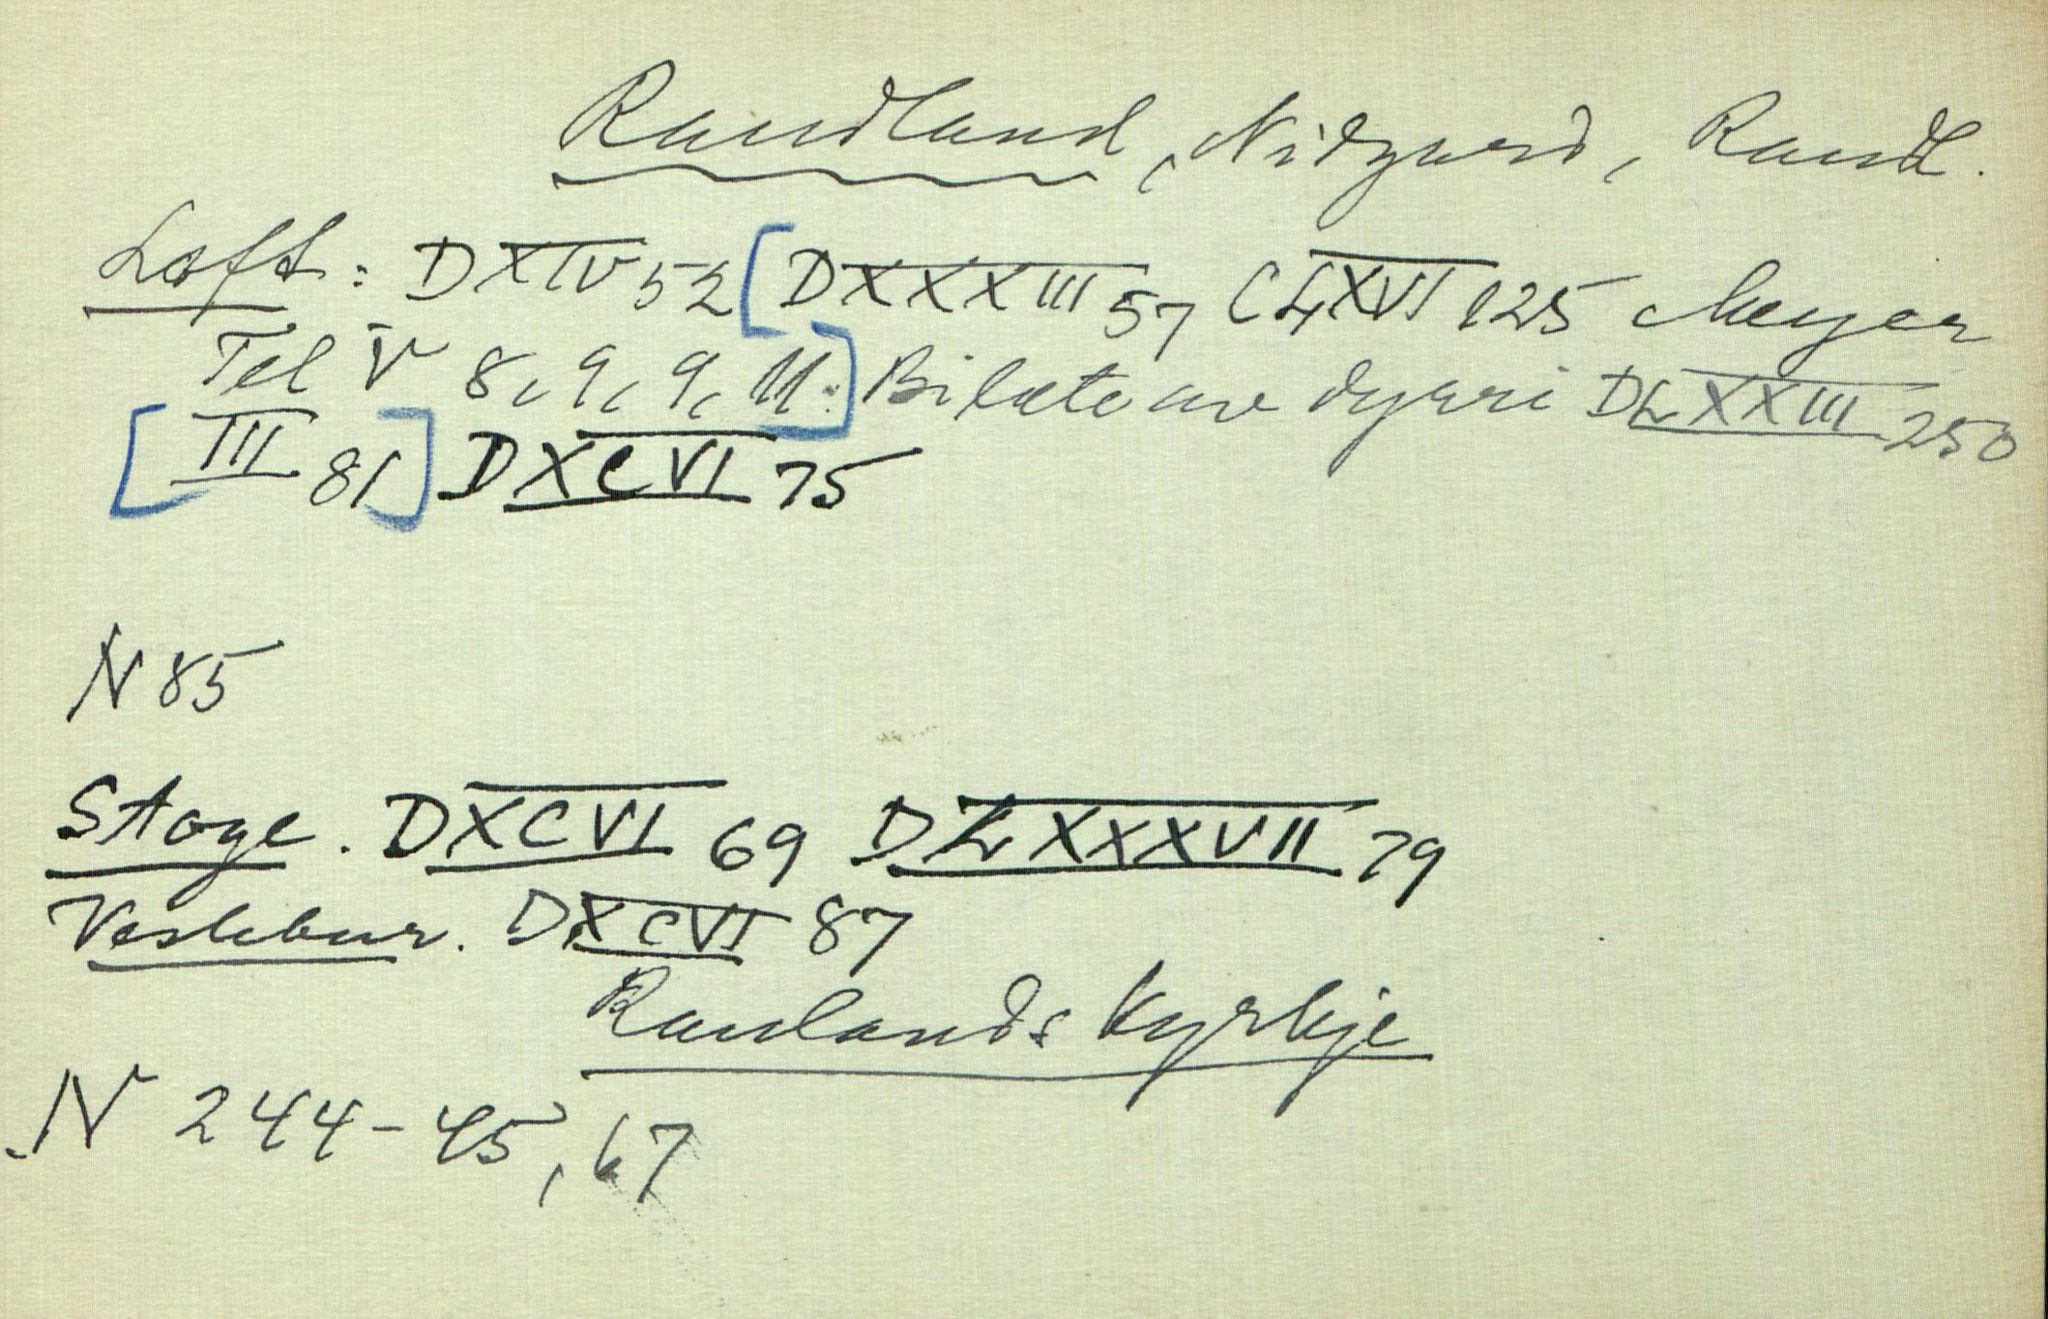 Raudland, Nigard, Raudl.
Loft: D XIV 52 [D XXXIII 57 C LXVI 125 Meyer
Tel V 8, 9, 9, 11:] Bilæte av dyrri D LXXIII 250
[III 81] D XCVI 75
N 85
Stoge. D XCVI 69 D LXXXVII 79
Veslebur. D XCVI 87
Raulands Kyrkje
N 244-45, 67